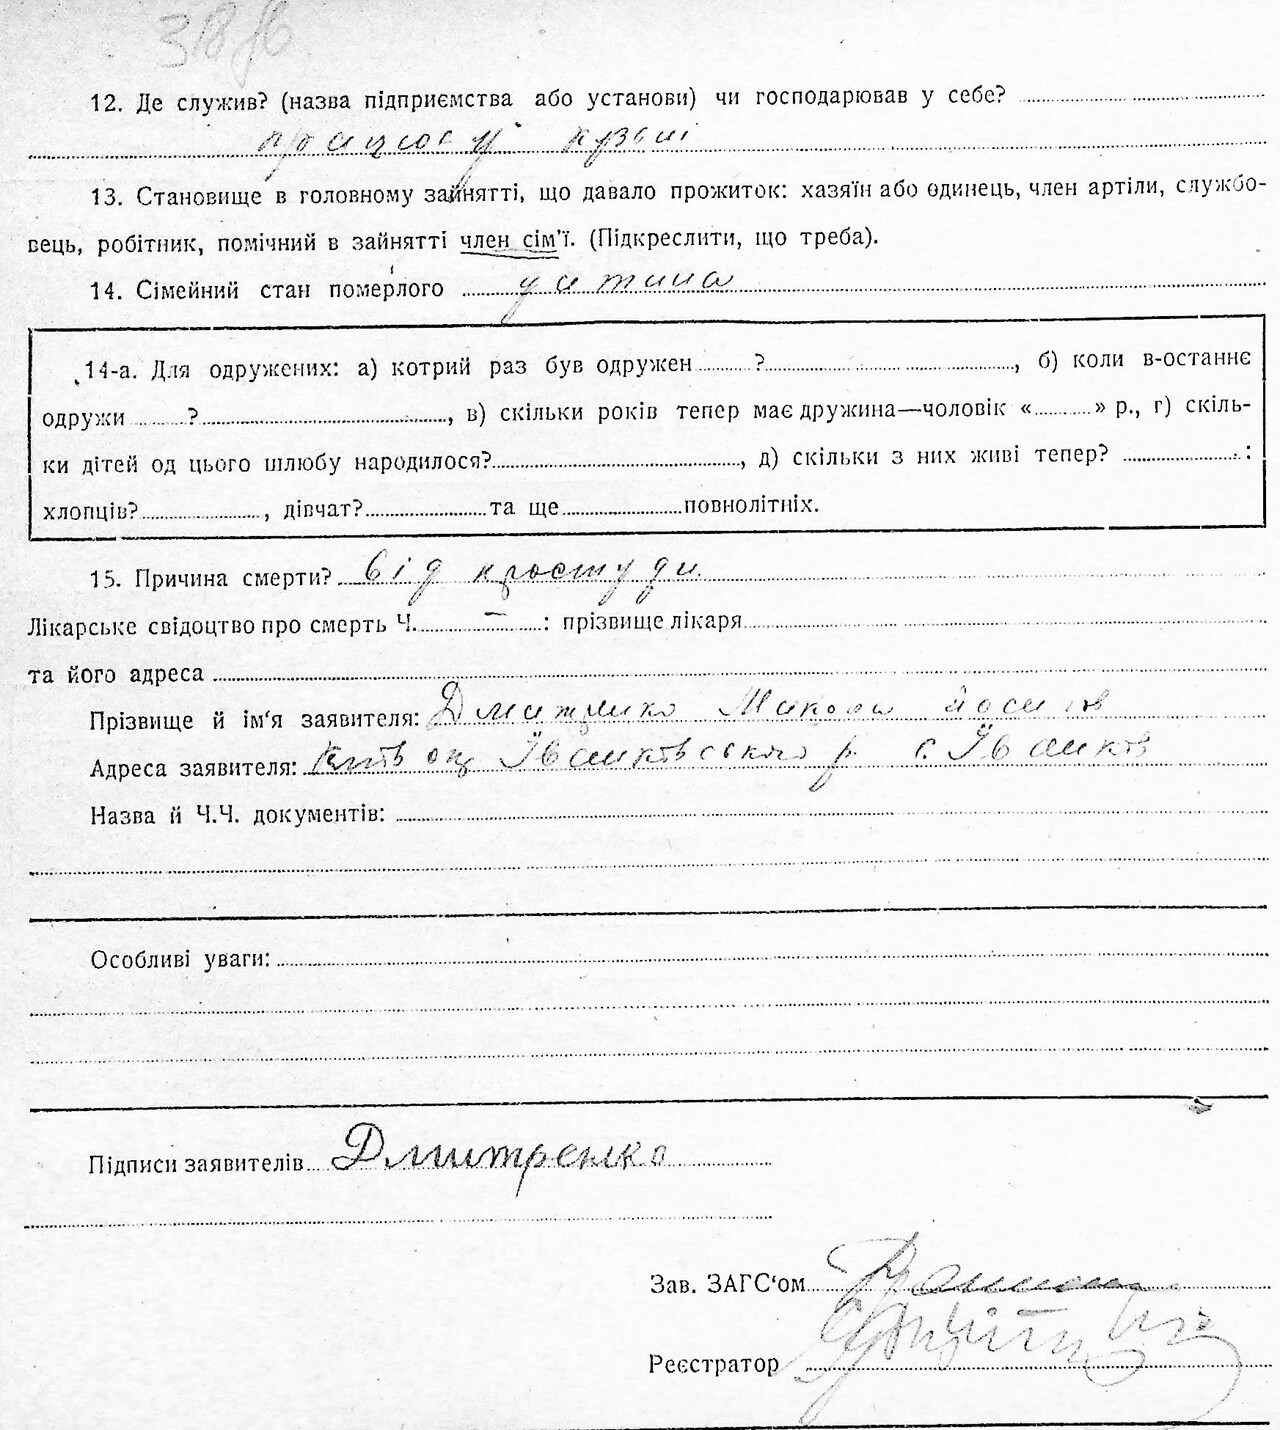 12. Де служив? (назва підприємства або установи) чи господарював у себе?
працює у кузні
13. Становище в головному зайнятті, що давало прожиток: хазяїн або одинець, член артіли, службо-
вець, робітник, помічний в зайнятті член сім'ї. (Підкреслити, що треба).
14. Сімейний стан померлого дитина
14-а. Для одружених: а) котрий раз був одружен ?, б) коли в-останнє
одружи ?, в) скільки років тепер має дружина—чоловік « » р., г) скіль-
ки дітей од цього шлюбу народилося?, д) скільки з них живі тепер? :
хлопців?, дівчат? та ще повнолітніх.
15. Причина смерти? від простуди
Лікарське свідоцтво про смерть Ч. — : прізвище лікаря
та його адреса
Прізвище й ім'я заявителя: Микола
Адреса заявителя: Київ Іванківського р. с. Іванків
Назва й Ч.Ч. документів:
Особливі уваги:
Підписи заявителів Дмитренко
Зав. ЗАГС'ом
Реєстратор